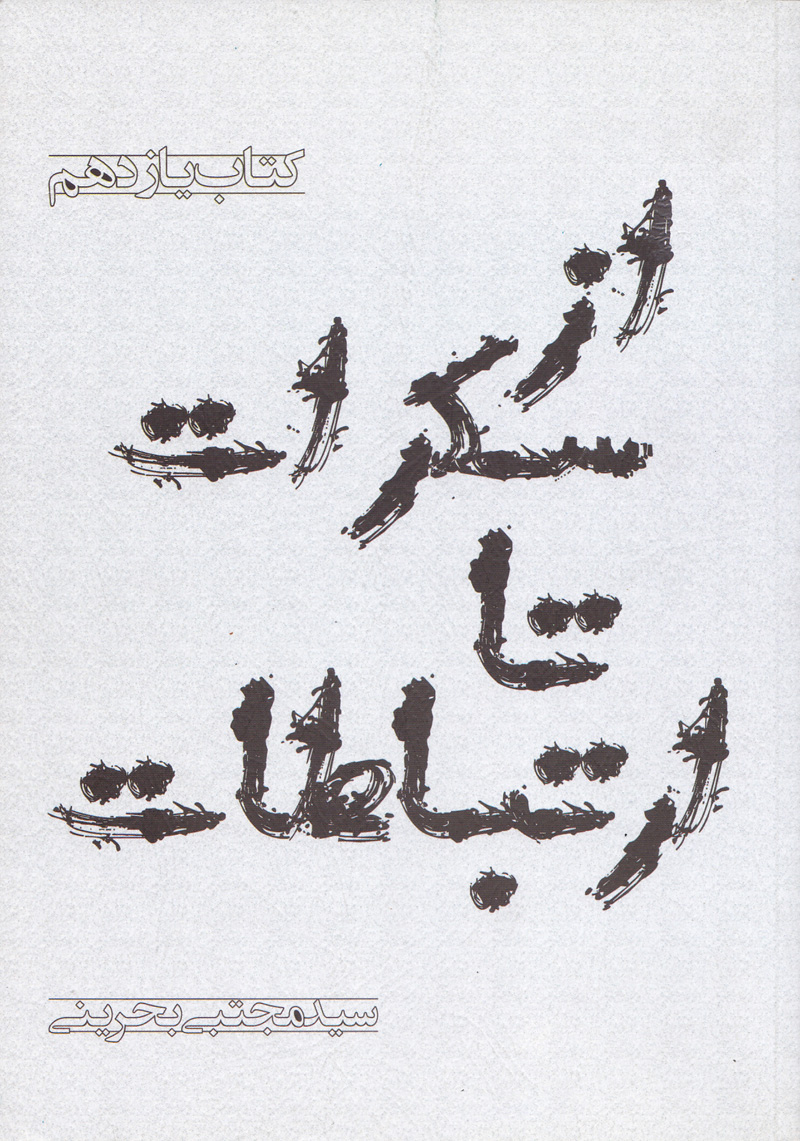 کتاب یازدهم
از
سکرات
تا
ارتباطات
سید مجتبی بحرینی